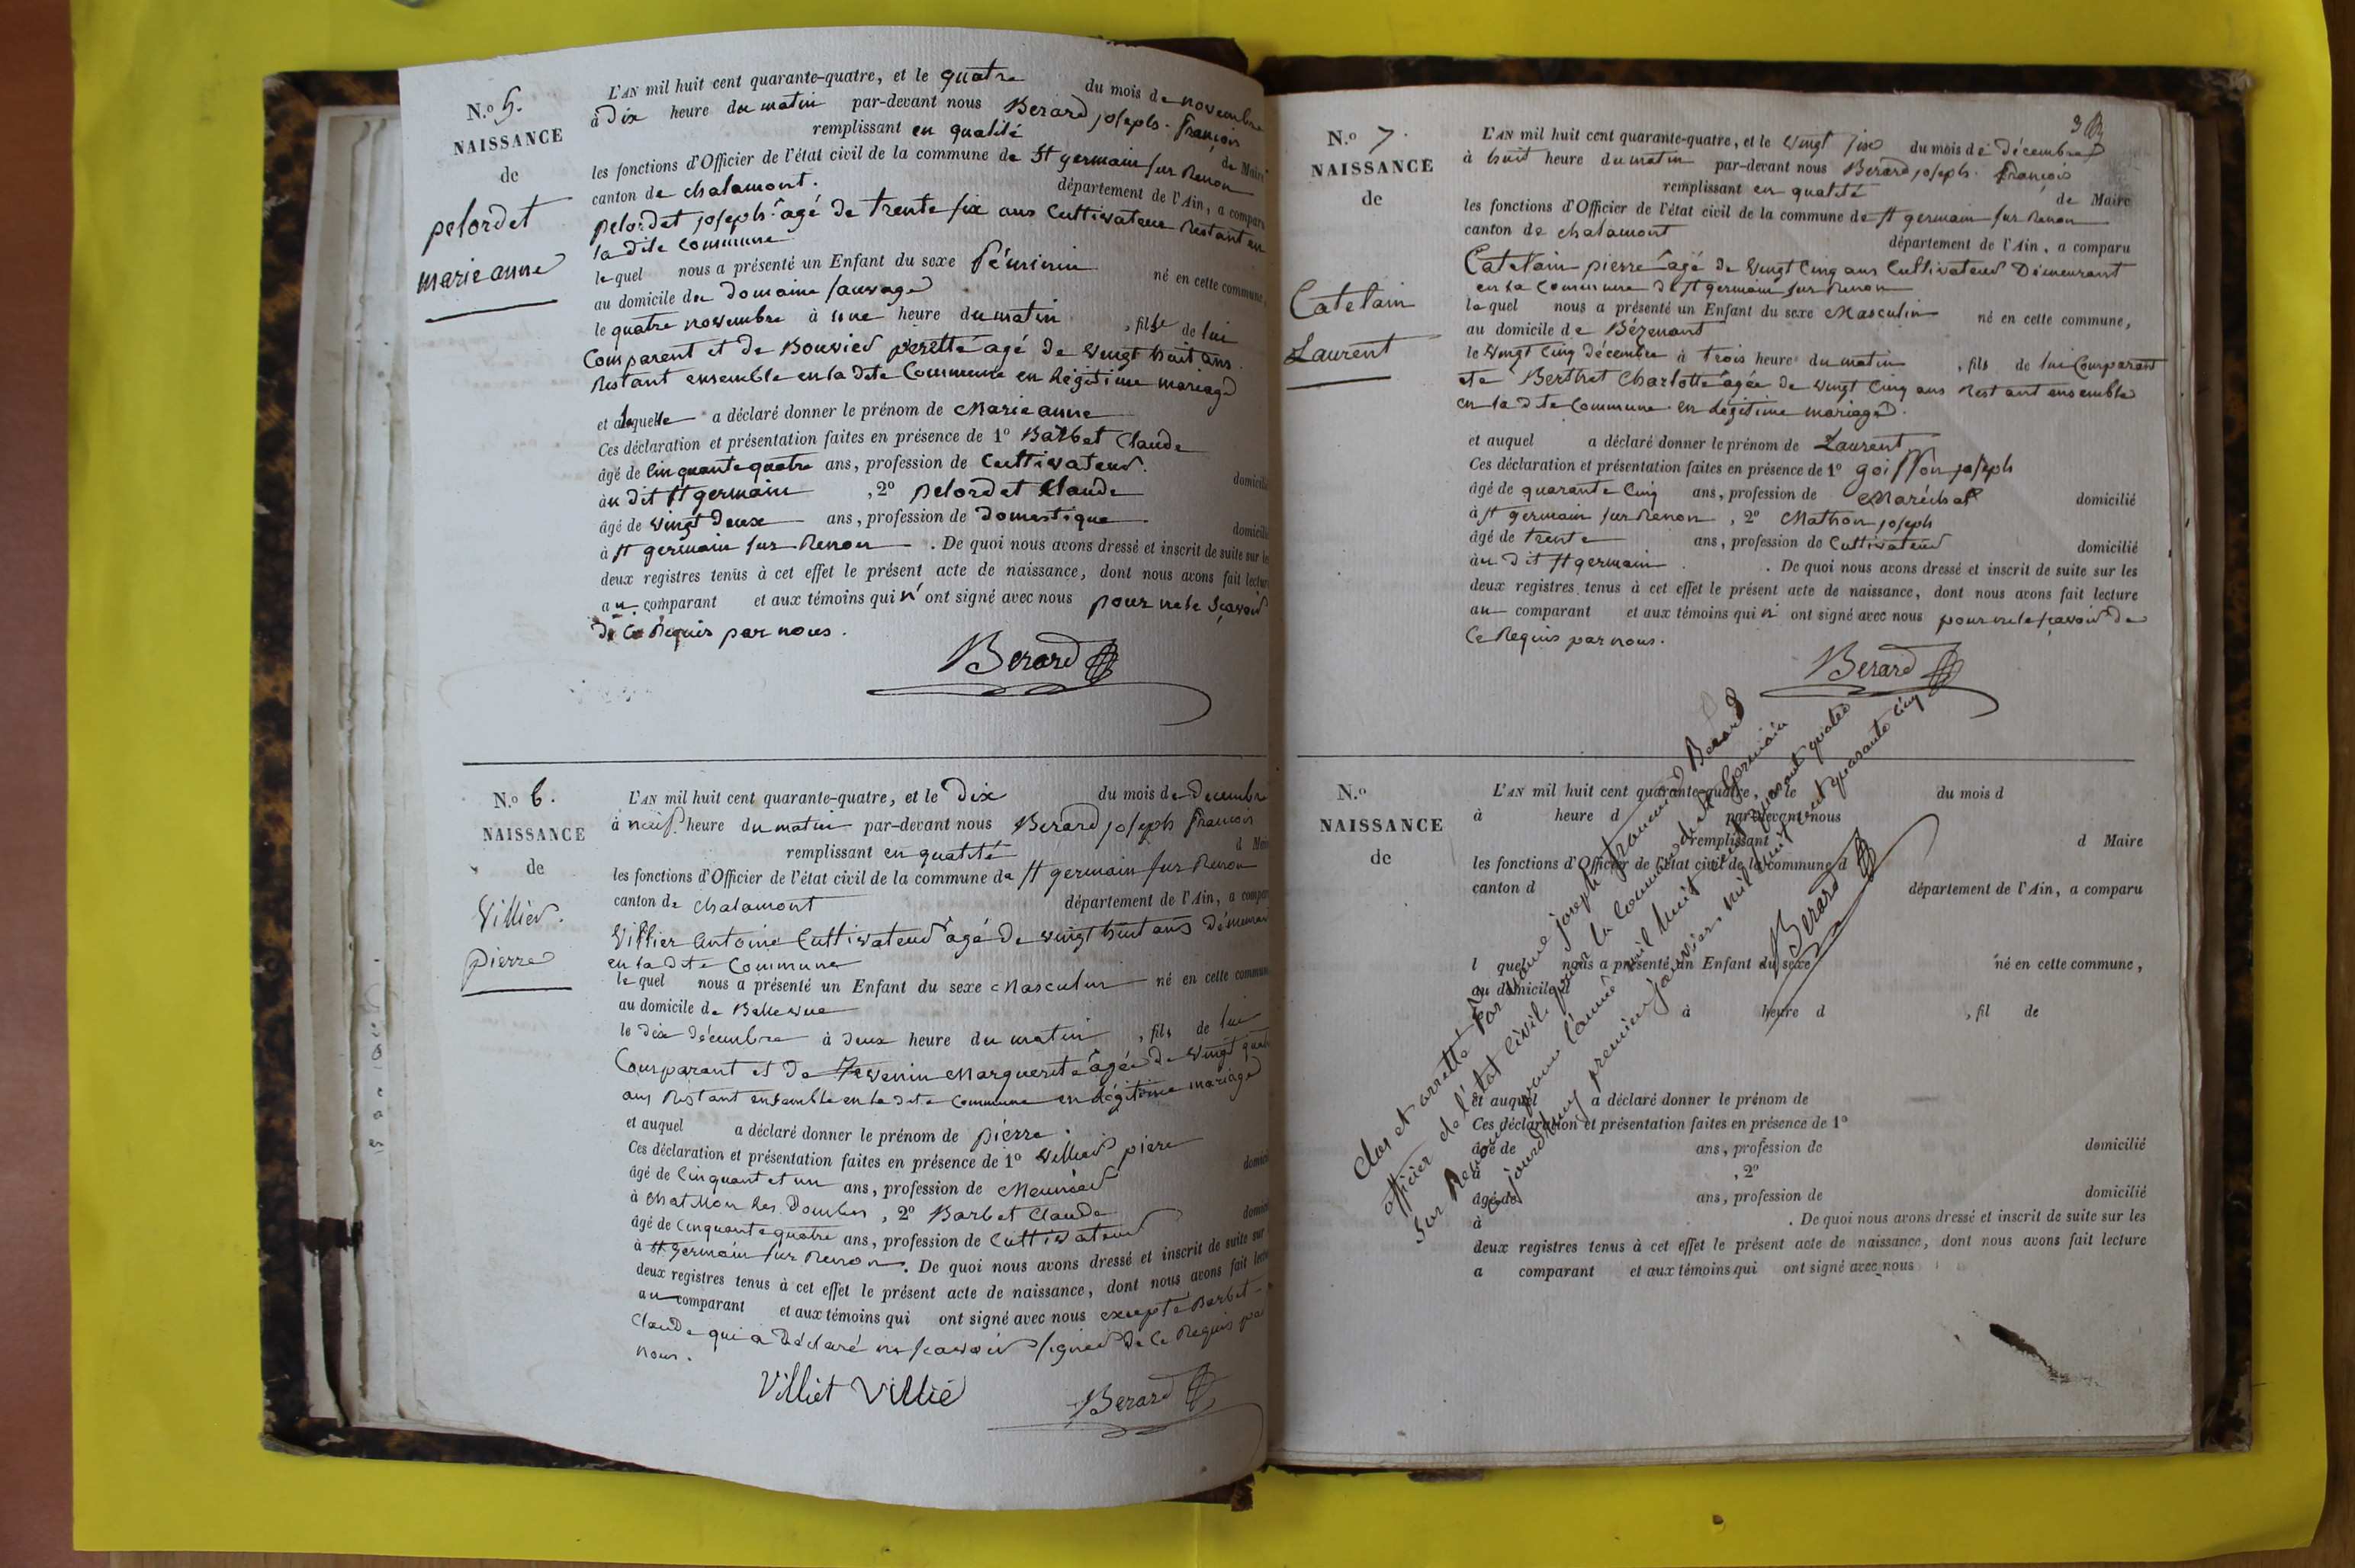 N.o 5.
NAISSANCE
de
pelordet
marie anne
L'AN mil huit cent quarante-quatre, et le quatre du mois de novembre
à Dix heure du matin par-devant nous Berard joseph. françois
remplissant en qualité de Maire
les fonctions d'Officier de l'état civil de la commune de St germain sur Renon
canton de chalamont. département de l'Ain, a comparu
pelordet joseph âgé de trente six ans Cultivateur Restant en
la dite Commune
le quel nous a présenté un Enfant du sexe féminin né en cette commune,
au domicile du Domaine sauvage
le quatre novembre à une heure du matin , fille de lui
Comparent et de Bouvier perette âgé de vingt huit ans
Restant ensemble en la dite Commune en Légitime mariage
et à laquelle a déclaré donner le prénom de Marie anne
Ces déclaration et présentation faites en présence de 1o Barbet Claude
âgé de Cinquante quatre ans, profession de Cultivateur. domicilié
àu dit St germain , 2o pelordet Claude
âgé de vingt Deux ans, profession de Domestique domicilié
à St germain sur Renon . De quoi nous avons dressé et inscrit de suite sur les
deux registres tenus à cet effet le présent acte de naissance, dont nous avons fait lecture
au comparant et aux témoins qui n' ont signé avec nous pour ne le sçavoir
de Ce Requis par nous.
Berard
N.o 6.
NAISSANCE
de
Villier.
pierre
L'AN mil huit cent quarante-quatre, et le Dix du mois de Décembre
à neuf heure du matin par-devant nous Berard joseph françois
remplissant en qualité d Maire
les fonctions d'Officier de l'état civil de la commune de St germain sur Renon
canton de chalamont département de l'Ain, a comparu
Villier Antoine Cultivateur âgé de vingt huit ans Démeurant
en la dite Commune
le quel nous a présenté un Enfant du sexe Masculin né en cette commune
au domicile de Bellevue
le dix décembre à deux heure du matin , fils de lui
Comparant et de Thevenin Marguerite âgée de vingt quatre
ans Restant ensemble en la dite Commune en Légitime mariage
et auquel a déclaré donner le prénom de pierre.
Ces déclaration et présentation faites en présence de 1o Villier piere
âgé de Cinquant et un ans, profession de Meunier domicilié
à Chatillon les Dombes , 2o Barbet Claude
âgé de Cinquante quatre ans, profession de Cultivateur domicilié
à St germain sur Renon. De quoi nous avons dressé et inscrit de suite sur
deux registres tenus à cet effet le présent acte de naissance, dont nous avons fait lecture
au comparant et aux témoins qui ont signé avec nous excepté Barbet
Claude qui a Déclaré ne scavoir signer de Ce Requis par
nous.
Villiét Villié Berard
3
N.o 7.
NAISSANCE
de
Catelain
Laurent
L'AN mil huit cent quarante-quatre, et le vingt six du mois de décembre
à huit heure du matin par-devant nous Berard joseph. françois
remplissant en qualité de Maire
les fonctions d'Officier de l'état civil de la commune de St germain sur Renon
canton de chalamont département de l'Ain, a comparu
Catelain pierre âgé de vingt Cinq ans Cultivateur Démeurant
en la Commune de St germain sur Renon
le quel nous a présenté un Enfant du sexe Masculin né en cette commune,
au domicile de Bézenant
le vingt Cinq décembre à trois heure du matin , fils de lui Comparant
et de Berthet Charlotte âgée de vingt Cinq ans Restant ensemble
en la dite Commune en Légitime mariage.
et auquel a déclaré donner le prénom de Laurent
Ces déclaration et présentation faites en présence de 1o goiffon joseph
âgé de quarante Cinq ans, profession de Maréchal domicilié
à St germain sur Renon , 2o Mathon joseph
âgé de trente ans, profession de Cultivateur domicilié
àu dit St germain . De quoi nous avons dressé et inscrit de suite sur les
deux registres tenus à cet effet le présent acte de naissance, dont nous avons fait lecture
au comparant et aux témoins qui n' ont signé avec nous pour ne le sçavoir de
Ce Requis par nous.
Berard
N.o
NAISSANCE
de
L'AN mil huit cent quarante-quatre, et le du mois d
à heure d par-devant nous
remplissant d Maire
les fonctions d'Officier de l'état civil de la commune d
canton d département de l'Ain, a comparu
l quel nous a présenté un Enfant du sexe né en cette commune,
au domicile d
à heure d , fil de
et auquel a déclaré donner le prénom de
Ces déclaration et présentation faites en présence de 1o
âgé de ans, profession de domicilié
à , 2o
âgé de ans, profession de domicilié
à . De quoi nous avons dressé et inscrit de suite sur les
deux registres tenus à cet effet le présent acte de naissance, dont nous avons fait lecture
a comparant et aux témoins qui ont signé avec nous
Clos et arretté par nous joseph francois Berard
officier de l'état civil pour la Commune de St Germain
sur Renon pour l'année mil huit cent quarant quatre
ce jourdhuy premier janvier mil huit cent quarante cinq
Berard